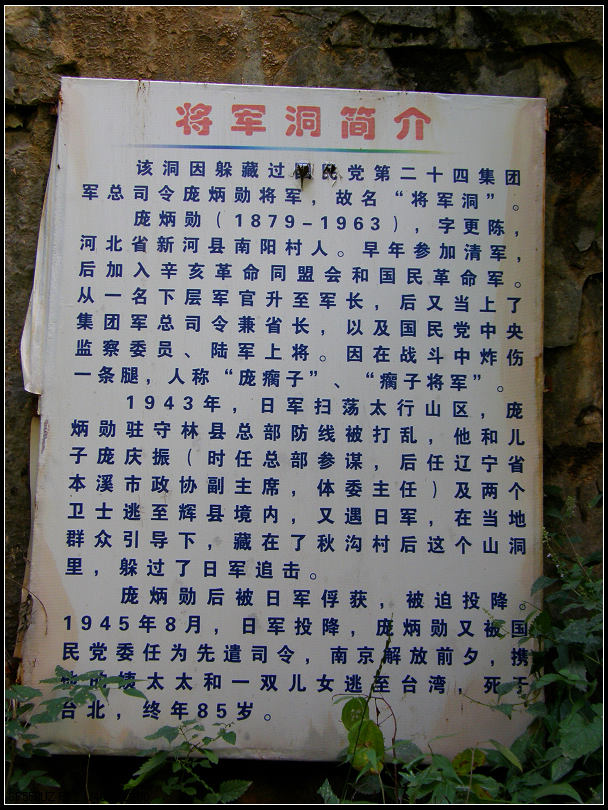 将军洞简介
该洞因躲藏过国民党第二十四集团
军总司令庞炳勋将军，故名“将军洞”。
庞炳勋（1879-1963），字更陈，
河北省新河县南阳村人。早年参加清军，
后加入辛亥革命同盟会和国民革命军。
从一名下层军官升至军长，后又当上了
集团军总司令兼省长，以及国民党中央
监察委员、陆军上将。因在战斗中炸伤
一条腿，人称“庞瘸子”、“瘸子将军”。
1943年，日军扫荡太行山区，庞
炳勋驻守林县总部防线被打乱，他和儿
子庞庆振（时任总部参谋，后任辽宁省
本溪市政协副主席，体委主任）及两个
卫士逃至辉县境内，又遇日军，在当地
群众引导下，藏在了秋沟村后这个山洞
里，躲过了日军追击。
庞炳勋后被日军俘获，被迫投降。
1945年8月，日军投降，庞炳勋又被国
民党委任为先遣司令，南京解放前夕，携
他的姨太太和一双儿女逃至台湾，死于
台北，终年85岁。